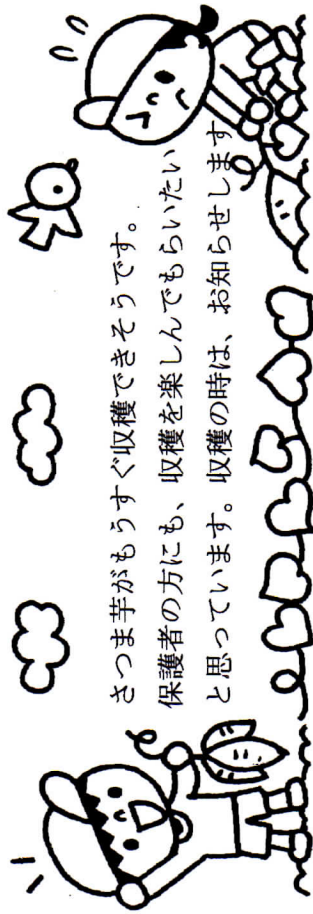 さつま芋がもうすぐ収穫できそうです。
保護者の方にも、収穫を楽しんでもらいたい
と思っています。収穫の時は、お知らせします